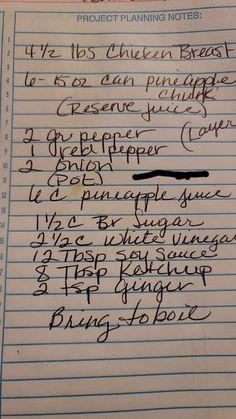 PROJECT PLANNING NOTES:
4 1/2 lbs Chicken Breast
6- 15 oz can pineapple
chunk
(Reserve juice)
2 gr pepper (Layer
1 red pepper
2 onion
(Pot)
6 c pineapple juice
1 1/2 c Br Sugar
2 1/2 c White Vinegar
12 Tbsp Soy Sauce
8 Tbsp Ketchup
2 tsp ginger
Bring to boil